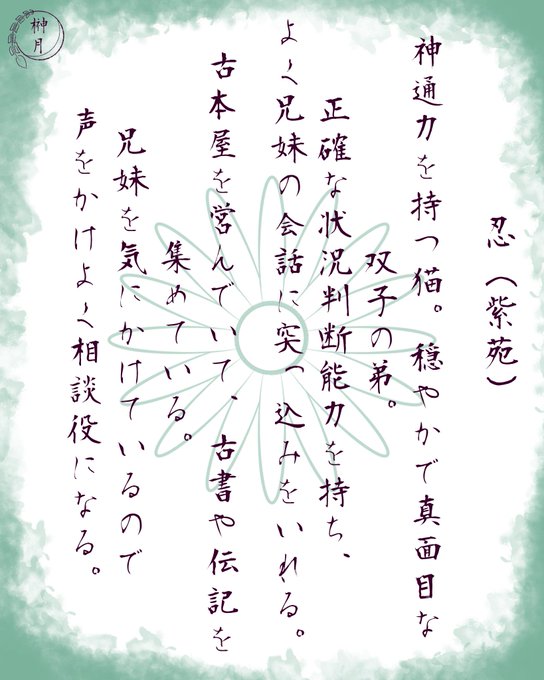 忍（紫苑）
神通力を持つ猫。穏やかで真面目な
双子の弟。
正確な状況判断能力を持ち、
よく兄妹の会話に突っ込みをいれる。
古本屋を営んでいて、古書や伝記を
集めている。
兄妹を気にかけているので
声をかけよく相談役になる。
榊月